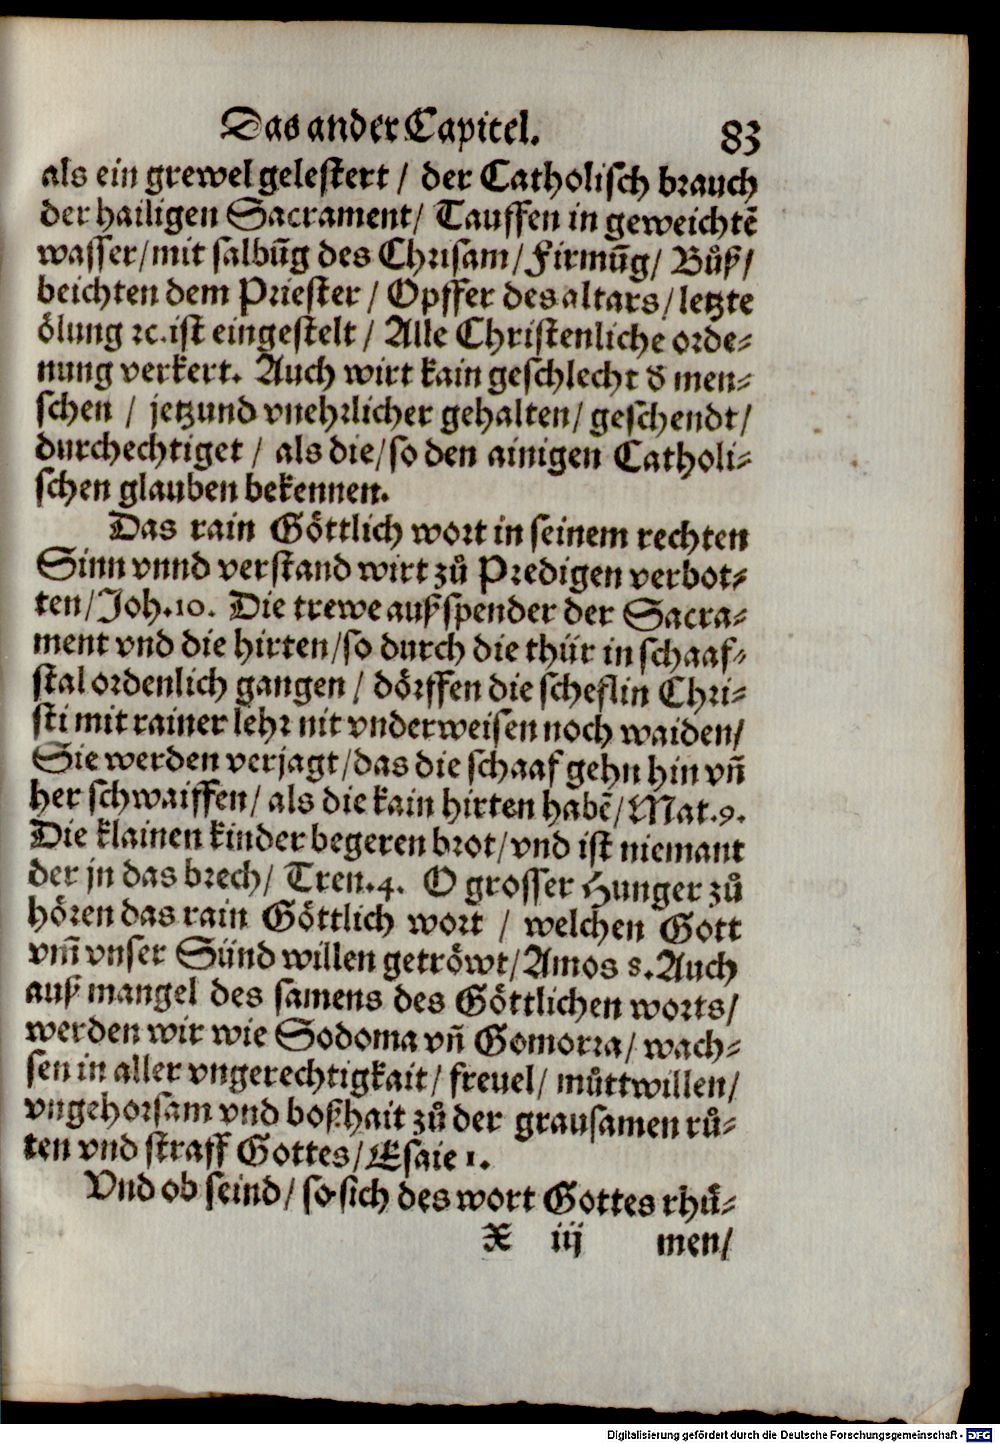 Das ander Capitel. 83
als ein grewel gelestert / der Catholisch brauch
der hailigen Sacrament / Tauffen in geweichtē
wasser / mit salbūg des Chrisam / Firmūg / Bůß /
beichten dem Priester / Opffer des altars / letzte
ölung ꝛc. ist eingestelt / Alle Christenliche orde-
nung verkert. Auch wirt kain geschlecht ď men-
schen / jetzund vnehrlicher gehalten / geschendt /
durchechtiget / als die / so den ainigen Catholi-
schen glauben bekennen.
Das rain Göttlich wort in seinem rechten
Sinn vnnd verstand wirt zů Predigen verbot-
ten / Joh. 10. Die trewe außspender der Sacra-
ment vnd die hirten / so durch die thür in schaaf-
stal ordenlich gangen / dörffen die scheflin Chri-
sti mit rainer lehr nit vnderweisen noch waiden /
Sie werden verjagt / das die schaaf gehn hin vñ
her schwaiffen / als die kain hirten habē / Mat. 9.
Die klainen kinder begeren brot / vnd ist niemant
der jn das brech / Tren. 4. O grosser Hunger zů
hören das rain Göttlich wort / welchen Gott
vm̄ vnser Sünd willen getröwt / Amos 8. Auch
auß mangel des samens des Göttlichen worts /
werden wir wie Sodoma vñ Gomorra / wach-
sen in aller vngerechtigkait / freuel / můttwillen /
vngehorsam vnd boßhait zů der grausamen rů-
ten vnd straff Gottes / Esaie 1.
Vnd ob seind / so sich des wort Gottes rhů-
X iij men /
Digitalisierung gefördert durch die Deutsche Forschungsgemeinschaft - DFG